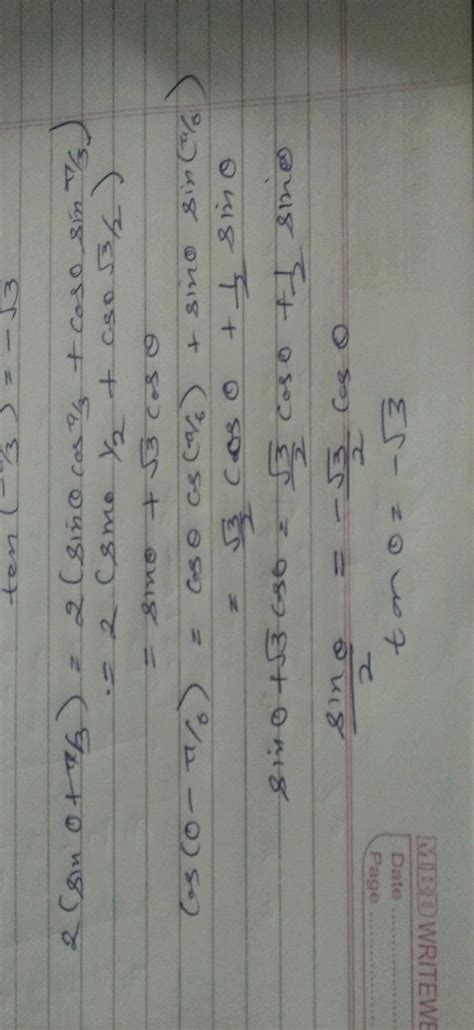 tan(-π/3) = -√3
2(sin θ + π/3) = 2(sin θ cos π/3 + cos θ sin π/3)
= 2(sin θ 1/2 + cos θ √3/2)
= sin θ + √3 cos θ
cos(θ - π/6) = cos θ cos(π/6) + sin θ sin(π/6)
= √3/2 cos θ + 1/2 sin θ
sin θ + √3 cos θ = √3/2 cos θ + 1/2 sin θ
sin θ/2 = -√3/2 cos θ
tan θ = -√3
WRITEW
Date
Page